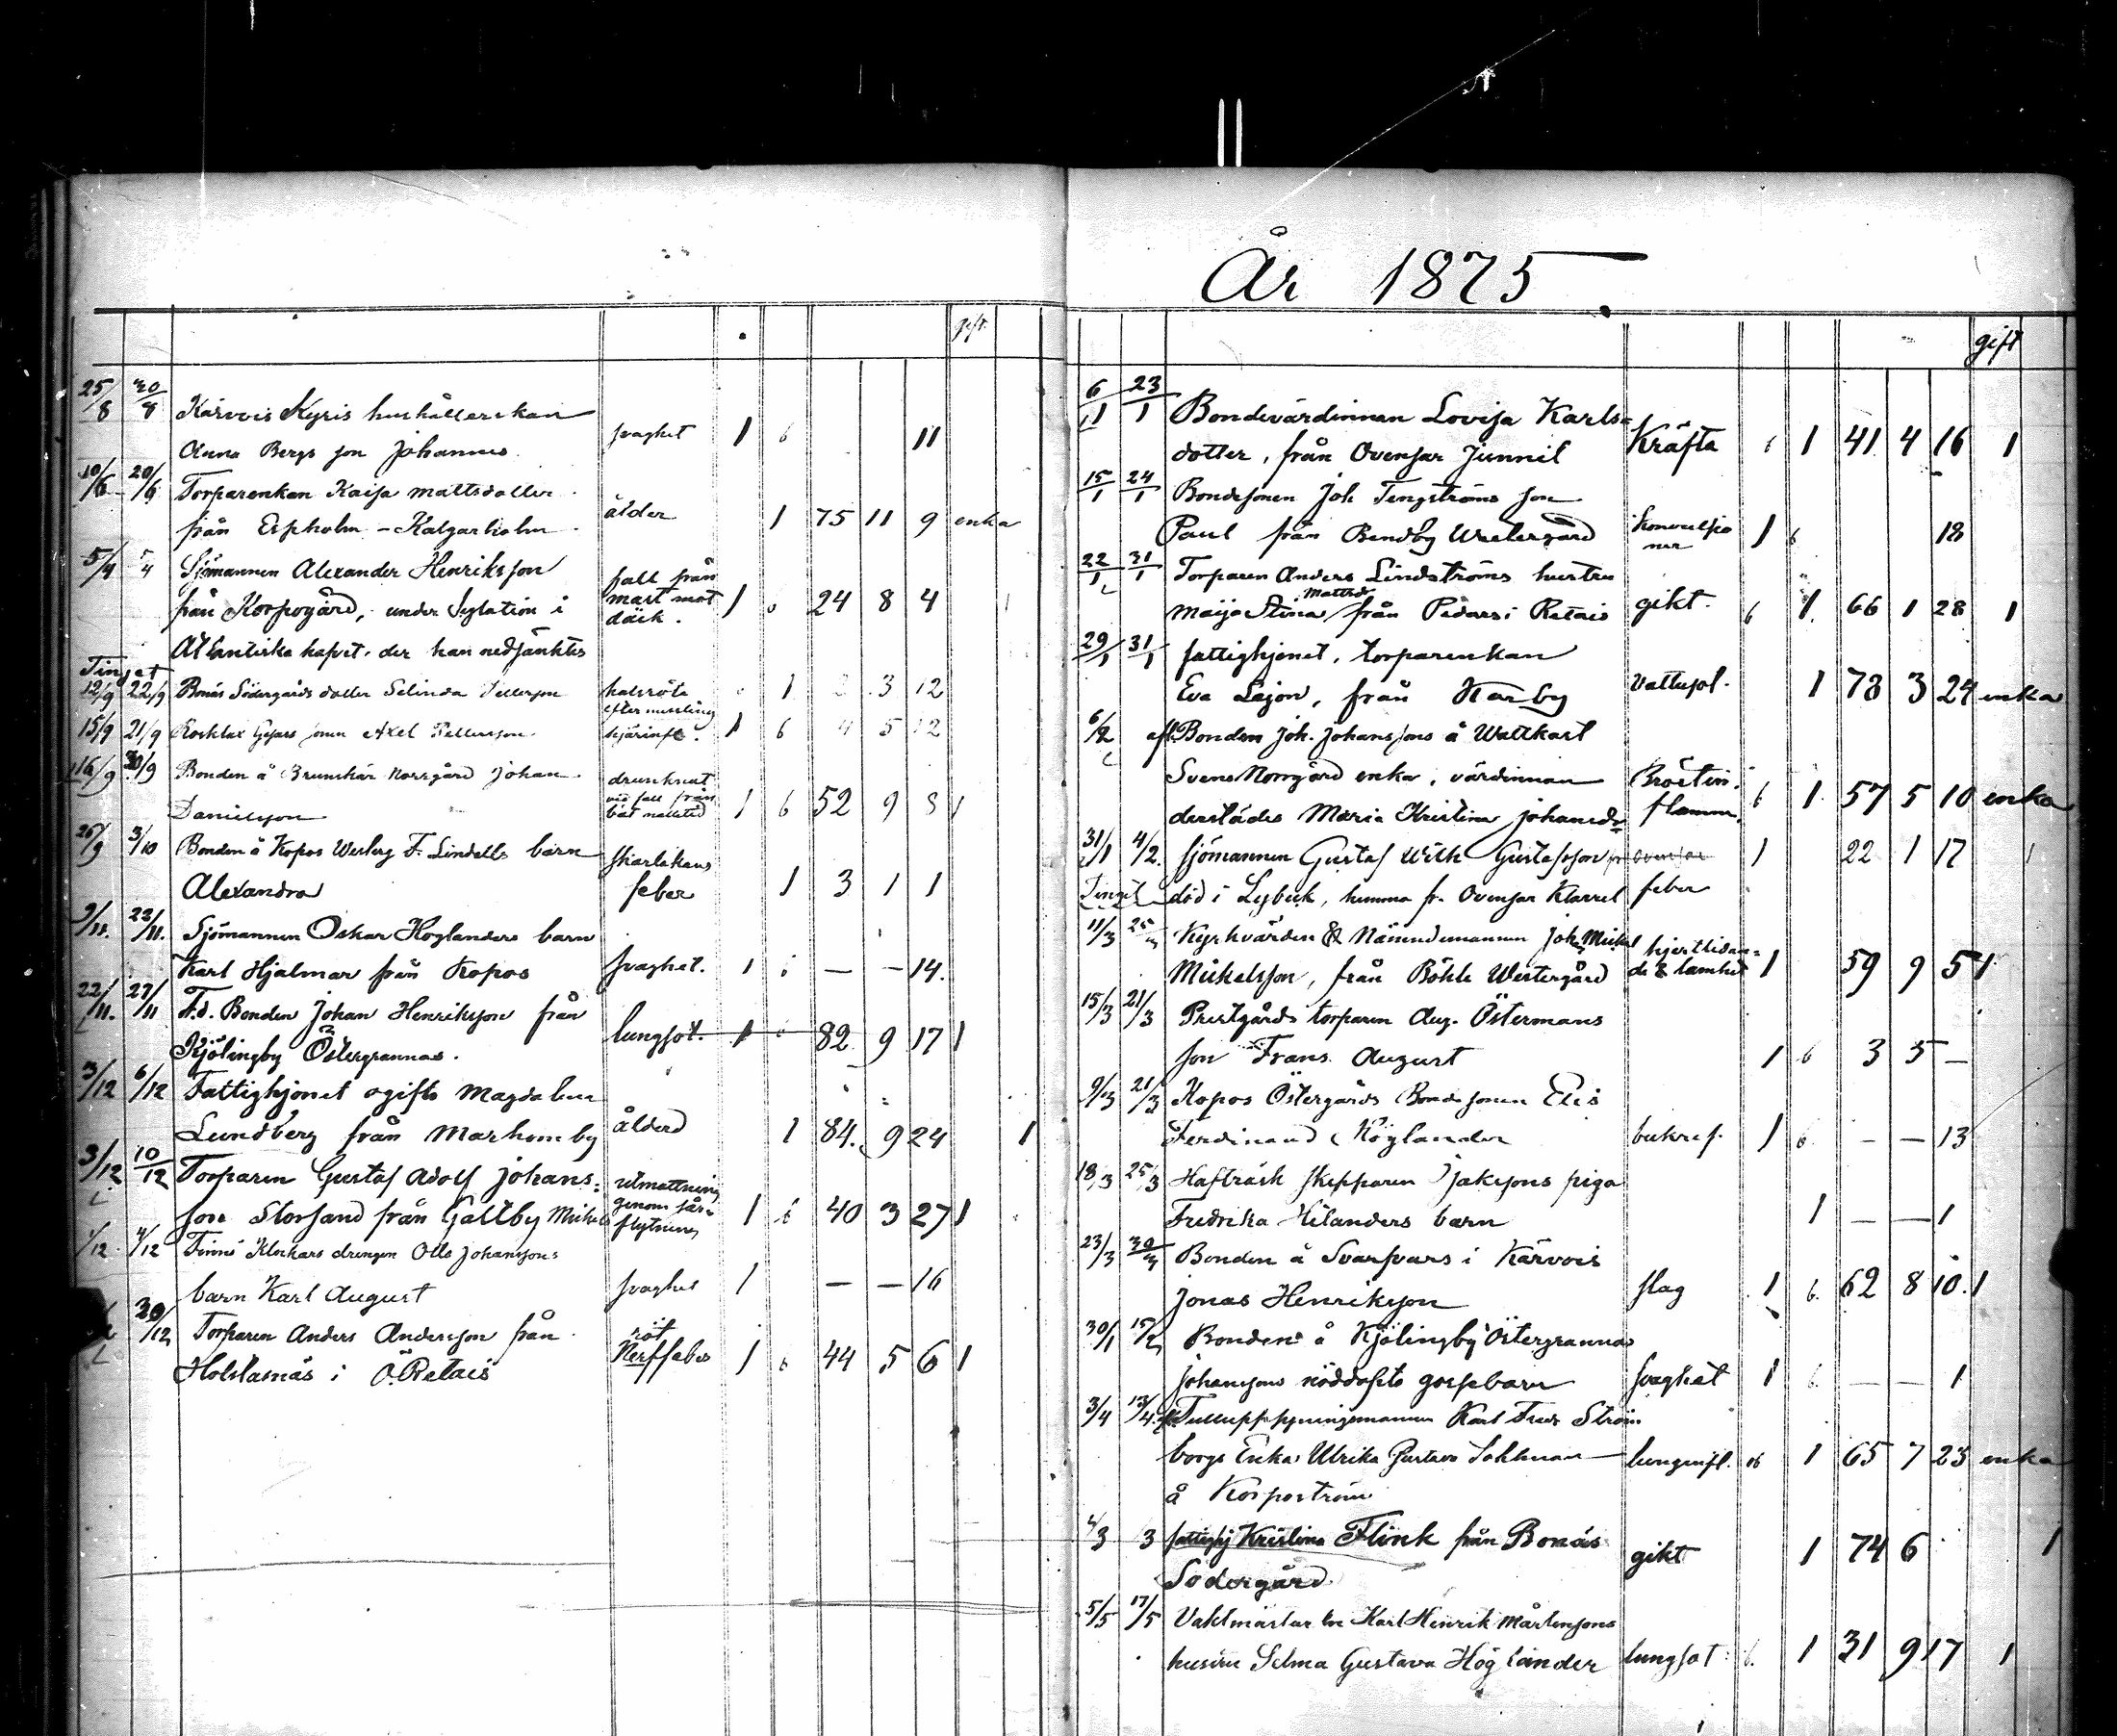 gift
25/8 30/8 Kärvois Kyris hushållerskan
Anna Bergs son Johannes. svaghet 1 6 11
10/6 20/6 Torparenkan Kaisa mattsdotter
från Erpholm - Kalgarholm. ålder 1 75 11 9 enka
5/4 5/4 Sjömannen Alexander Henriksson
från Korpogård, under seglation i fall från mast mot däck. 1 24 8 4
Atlantiska hafvet, der han nedsänktes
Tinget
12/9 22/9 Bonäs Södergårds dotter Selinda halsröta efter messling 1 3 12
15/9 21/9 Axel Pettersson hjärninfl. 1 6 4 5 12
16/9 30/9 Bonden å Brunskär Norrgård Johan
Danielsson drunknat vid fall från båt 1 6 52 9 8 1
26/9 3/10 Bonden å Kopos Westerg F. Lindells barn
Alexandra skarlakans feber 1 3 1 1
9/11. 22/11. Sjömannen Oskar Höglanders barn
Karl Hjalmar från Kopos svaghet. 1 — — 14.
22/11. 27/11 F.d. Bonden Johan Henriksson från
Kjölingby Östergrannas. lungsot. 1 82 9 17 1
3/12 6/12 Fattighjonet ogifta Magdalena
Lundberg från Marhomby ålderd 1 84. 9 24 1
3/12 10/12 Torparen Gustaf Adolf Johans=
son Storsand från Galtby Mickels utmattning genom för= flytning 1 6 40 3 27 1
1/12 4/12 Finnö Klockars drengen Otto Johanssons
barn Karl August svaghet 1 — — 16
30/12 Torparen Anders Andersson från
Holstasnäs i Ö. Retais röt Nerffeber 1 6 44 5 6 1
År 1875.
gift
6/1 23/1 Bondevärdinnan Lovisa Karls=
dotter, från Ovensar Junnil Kräfta 6 1 41 4 16 1
15/1 24/1 Bondesonen Joh Tengströms son
Paul från Rendby Westergård konvulsio ner 1 6 18
22/1 31/1 Torparen Anders Lindströms hustru
Maija Stina Mattsdr från Pedars i Retais gikt. 6 1. 66 1 28 1
29/1 31/1 fattighjonet, torparenkan
Eva Lejon, från Karby Vattusot. 1 78 3 24 enka
6/2 afl. Bonden Joh. Johanssons å Wattkast
Svens Norrgård enka, värdinnan Bröstin=
derstädes Maria Kristina Johansdr flamm. 6 1. 57 5 10 enka
31/1 4/2. Sjömannen Gustaf Wilh Gustafsson fr ovensar 1 22 1 17 1
Tinget död i Lybeck, hemma fr. Ovensar Klarvel feber
11/3 25/3 Kyrkvärden & Nämndemannen Joh. Mickel
Mickelsson, från Böhle Westergård hjertlidan= de & lamhet 1 59 9 5 1
15/3 21/3 Prestgårds torparen Aug. Östermans
son Frans August 1 6 3 5 —
9/3 21/3 Kopos Östergårds Bondesonen Elis
Ferdinand Höglander bukref. 1 6. — — 13
18/3 25/3 Hafträsk skepparen Jakssons piga
Fredrika Helanders barn 1 — — 1
23/3 30/3 Bonden å Svarfvars i Kärvois
Jonas Henriksson slag 1 6. 62 8 10. 1
30/1 15/2 Bonden å Kjölingby Östergrannas
Johanssons nöddöpta gossebarn svaghet 1 6. — — 1
3/4 13/4. Tulluppsyningsmannen Karl Fredr Ström
borgs Enka Ulrika Gustava Sohlman lunginfl. 1 65 7 23 enka
å Korpoström
4/3 3 fattighj Kristina Flink från Bonäs
Södergård gikt 1 74 6 1
5/5 17/5 Vaktmästaren Karl Henrik Mårtenssons
hustru Selma Gustava Höglander lungsot 6. 1 31 9 17 1